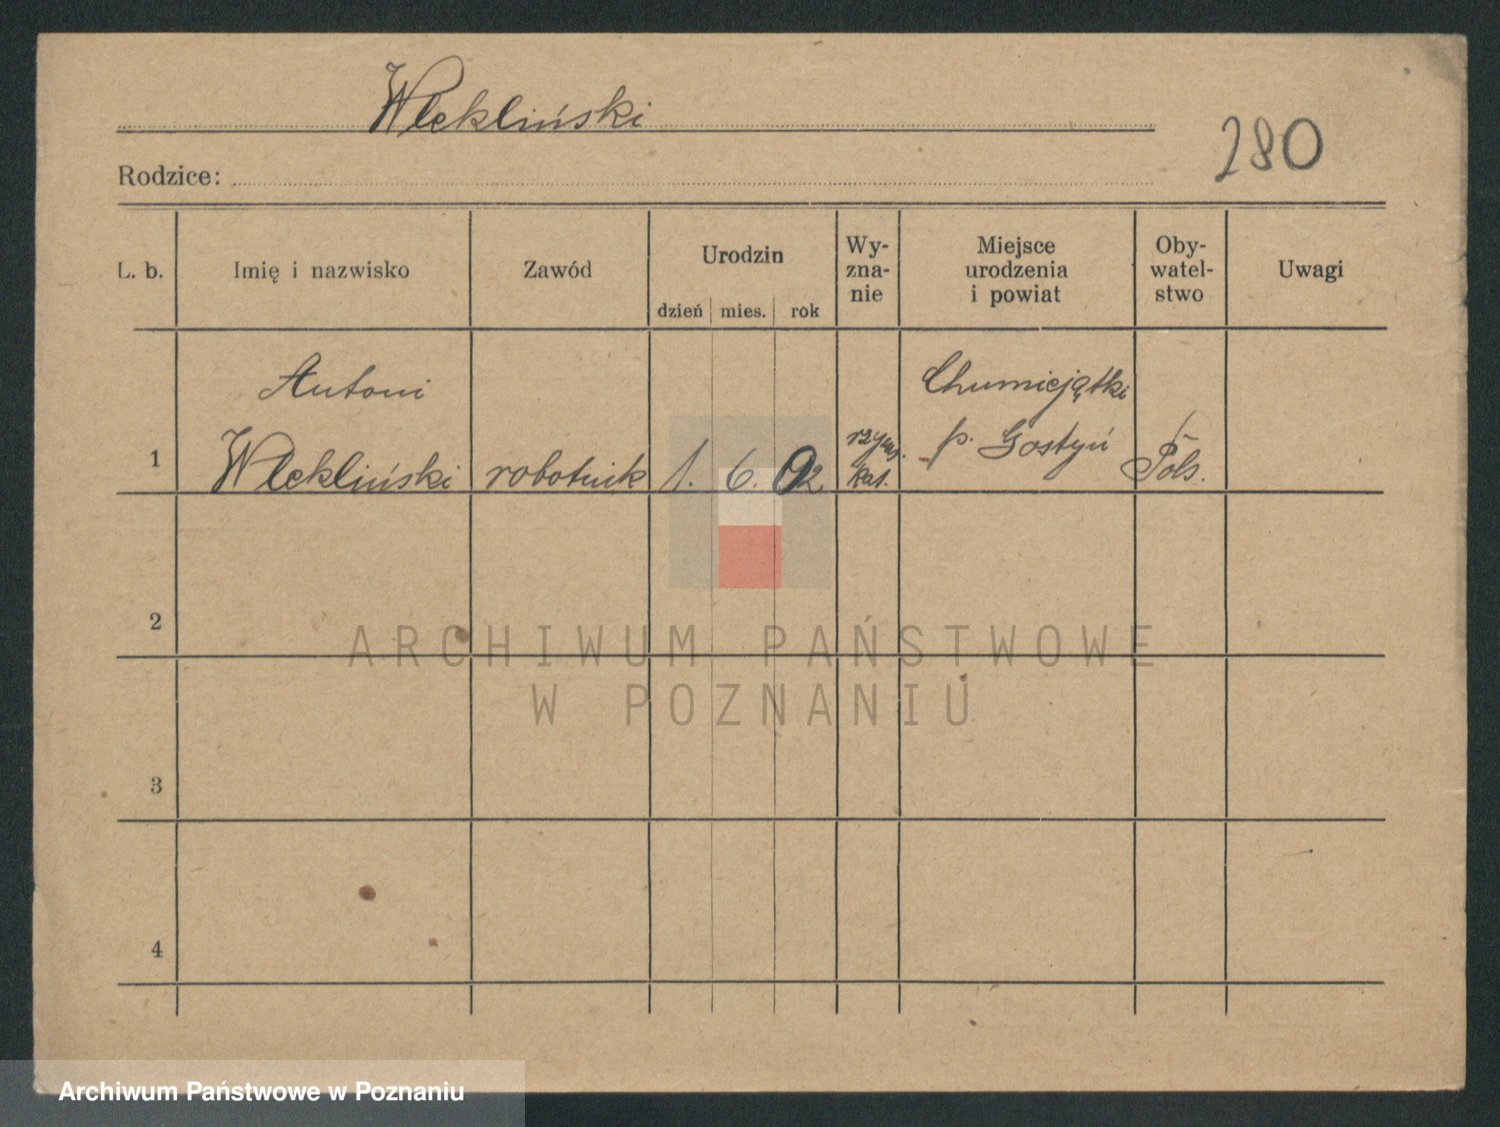 Wlekliński
280
Rodzice:
L. b.
Imię i nazwisko
Zawód
Urodzin
dzień mies. rok
Wy-
zna-
nie
Miejsce
urodzenia
i powiat
Oby-
watel-
stwo
Uwagi
1
Antoni
Wlekliński
robotnik
1. 6. 02.
rzym.
kat.
p. Gostyń
Pols.
2
3
4
ARCHIWUM PAŃSTWOWE
W POZNANIU
Archiwum Państwowe w Poznaniu